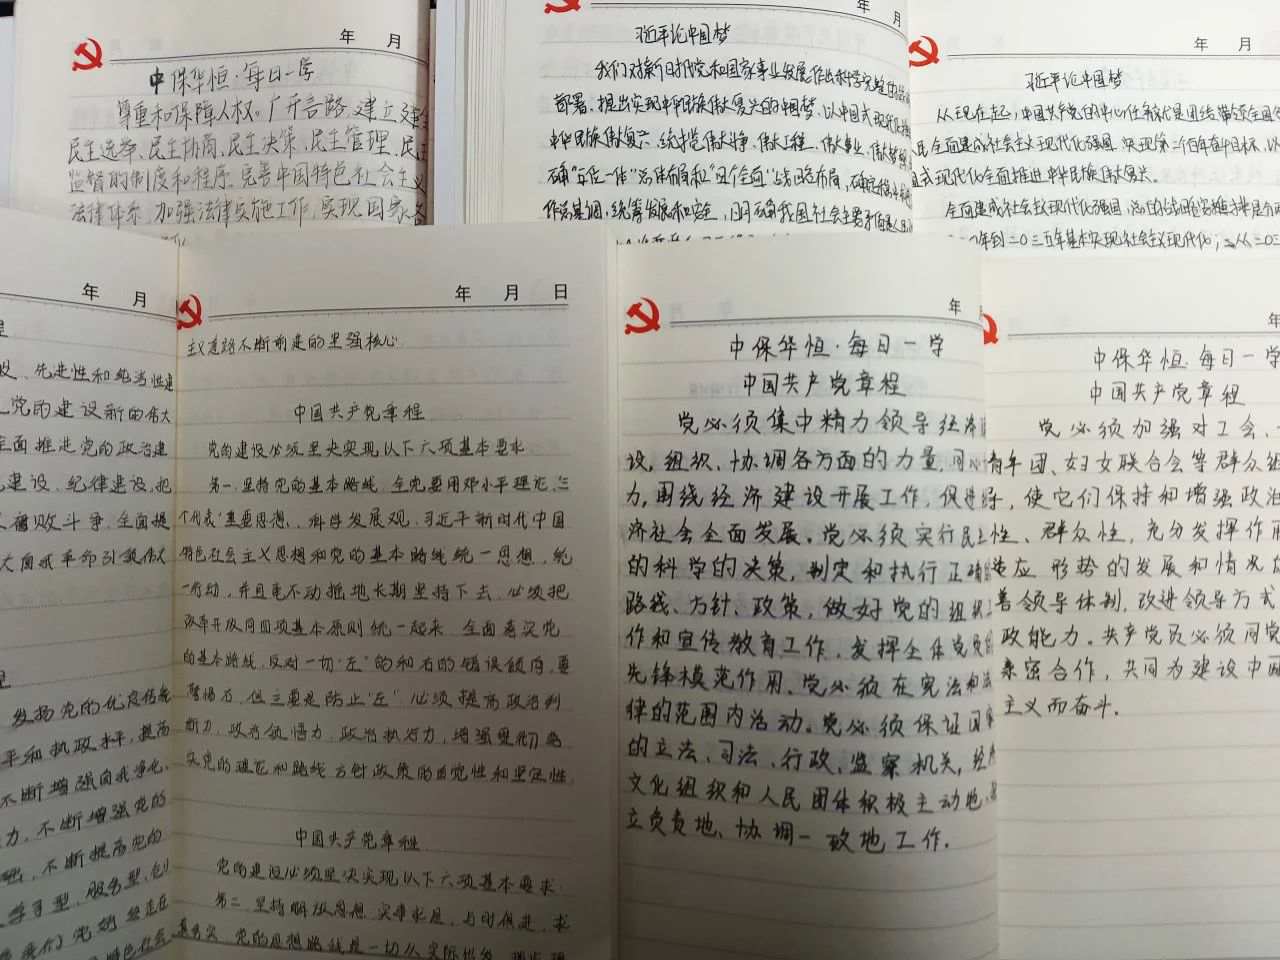 年 月
中保华恒·每日一学
尊重和保障人权。广开言路,建立
民主选举、民主协商、民主决策、民主管理、民主
监督的制度和程序。完善中国特色社会主义
法律体系,加强法律实施工作,实现国家
年 月
习近平论中国梦
我们对新时代党和国家事业发展作出科学完整的
部署,提出实现中华民族伟大复兴的中国梦,以中国式现代化
中华民族伟大复兴,统揽伟大斗争、伟大工程、伟大事业、伟大梦想
确“五位一体”总体布局和“四个全面”战略布局,确定稳
作总基调,统筹发展和安全,明确我国社会主要矛盾是人民
年 月
习近平论中国梦
从现在起,中国共产党的中心任务就是团结带领全国
民全面建成社会主义现代化强国、实现第二个百年奋斗目标,以
国式现代化全面推进中华民族伟大复兴。
全面建成社会主义现代化强国,总的战略安排是分两
年到二〇三五年基本实现社会主义现代化;从二〇三
年 月
先进性和纯洁性建
党的建设新的伟大
全面推进党的政治建
建设、纪律建设,把
腐败斗争,全面提
大自我革命引领伟大
发扬党的优良传统
平和执政水平,提高
不断增强自我净化、
力,不断增强党的
础,不断提高党的
学习型、服务型、创
我们党始终走在
年 月 日
主义道路不断前进的坚强核心
中国共产党章程
党的建设必须坚决实现以下六项基本要求
第一,坚持党的基本路线。全党要用邓小平理论、三
个代表”重要思想、科学发展观、习近平新时代中国
特色社会主义思想和党的基本路线统一思想,统
一行动,并且毫不动摇地长期坚持下去。必须把
改革开放同四项基本原则统一起来,全面落实党
的基本路线,反对一切“左”的和右的错误倾向,要
警惕右,但主要是防止“左”。必须提高政治判
断力、政治领悟力、政治执行力,增强贯彻落
实党的理论和路线方针政策的自觉性和坚定性。
中国共产党章程
党的建设必须坚决实现以下六项基本要求
第二,坚持解放思想,实事求是,与时俱进,求
真务实。党的思想路线是一切从实际出发,理论联
年
中保华恒·每日一学
中国共产党章程
党必须集中精力领导经济建
设,组织、协调各方面的力量,同心
力,围绕经济建设开展工作,促进经
济社会全面发展。党必须实行民主
的科学的决策,制定和执行正确的
路线、方针、政策,做好党的组织工
作和宣传教育工作,发挥全体党员的
先锋模范作用。党必须在宪法和法
律的范围内活动。党必须保证国家
的立法、司法、行政、监察机关,经济、
文化组织和人民团体积极主动地、独
立负责地、协调一致地工作。
年
中保华恒·每日一学
中国共产党章程
党必须加强对工会、
青年团、妇女联合会等群众组
导,使它们保持和增强政治
性、群众性,充分发挥作用
适应形势的发展和情况
善领导体制,改进领导方式
政能力。共产党员必须同党
亲密合作,共同为建设中国
主义而奋斗.